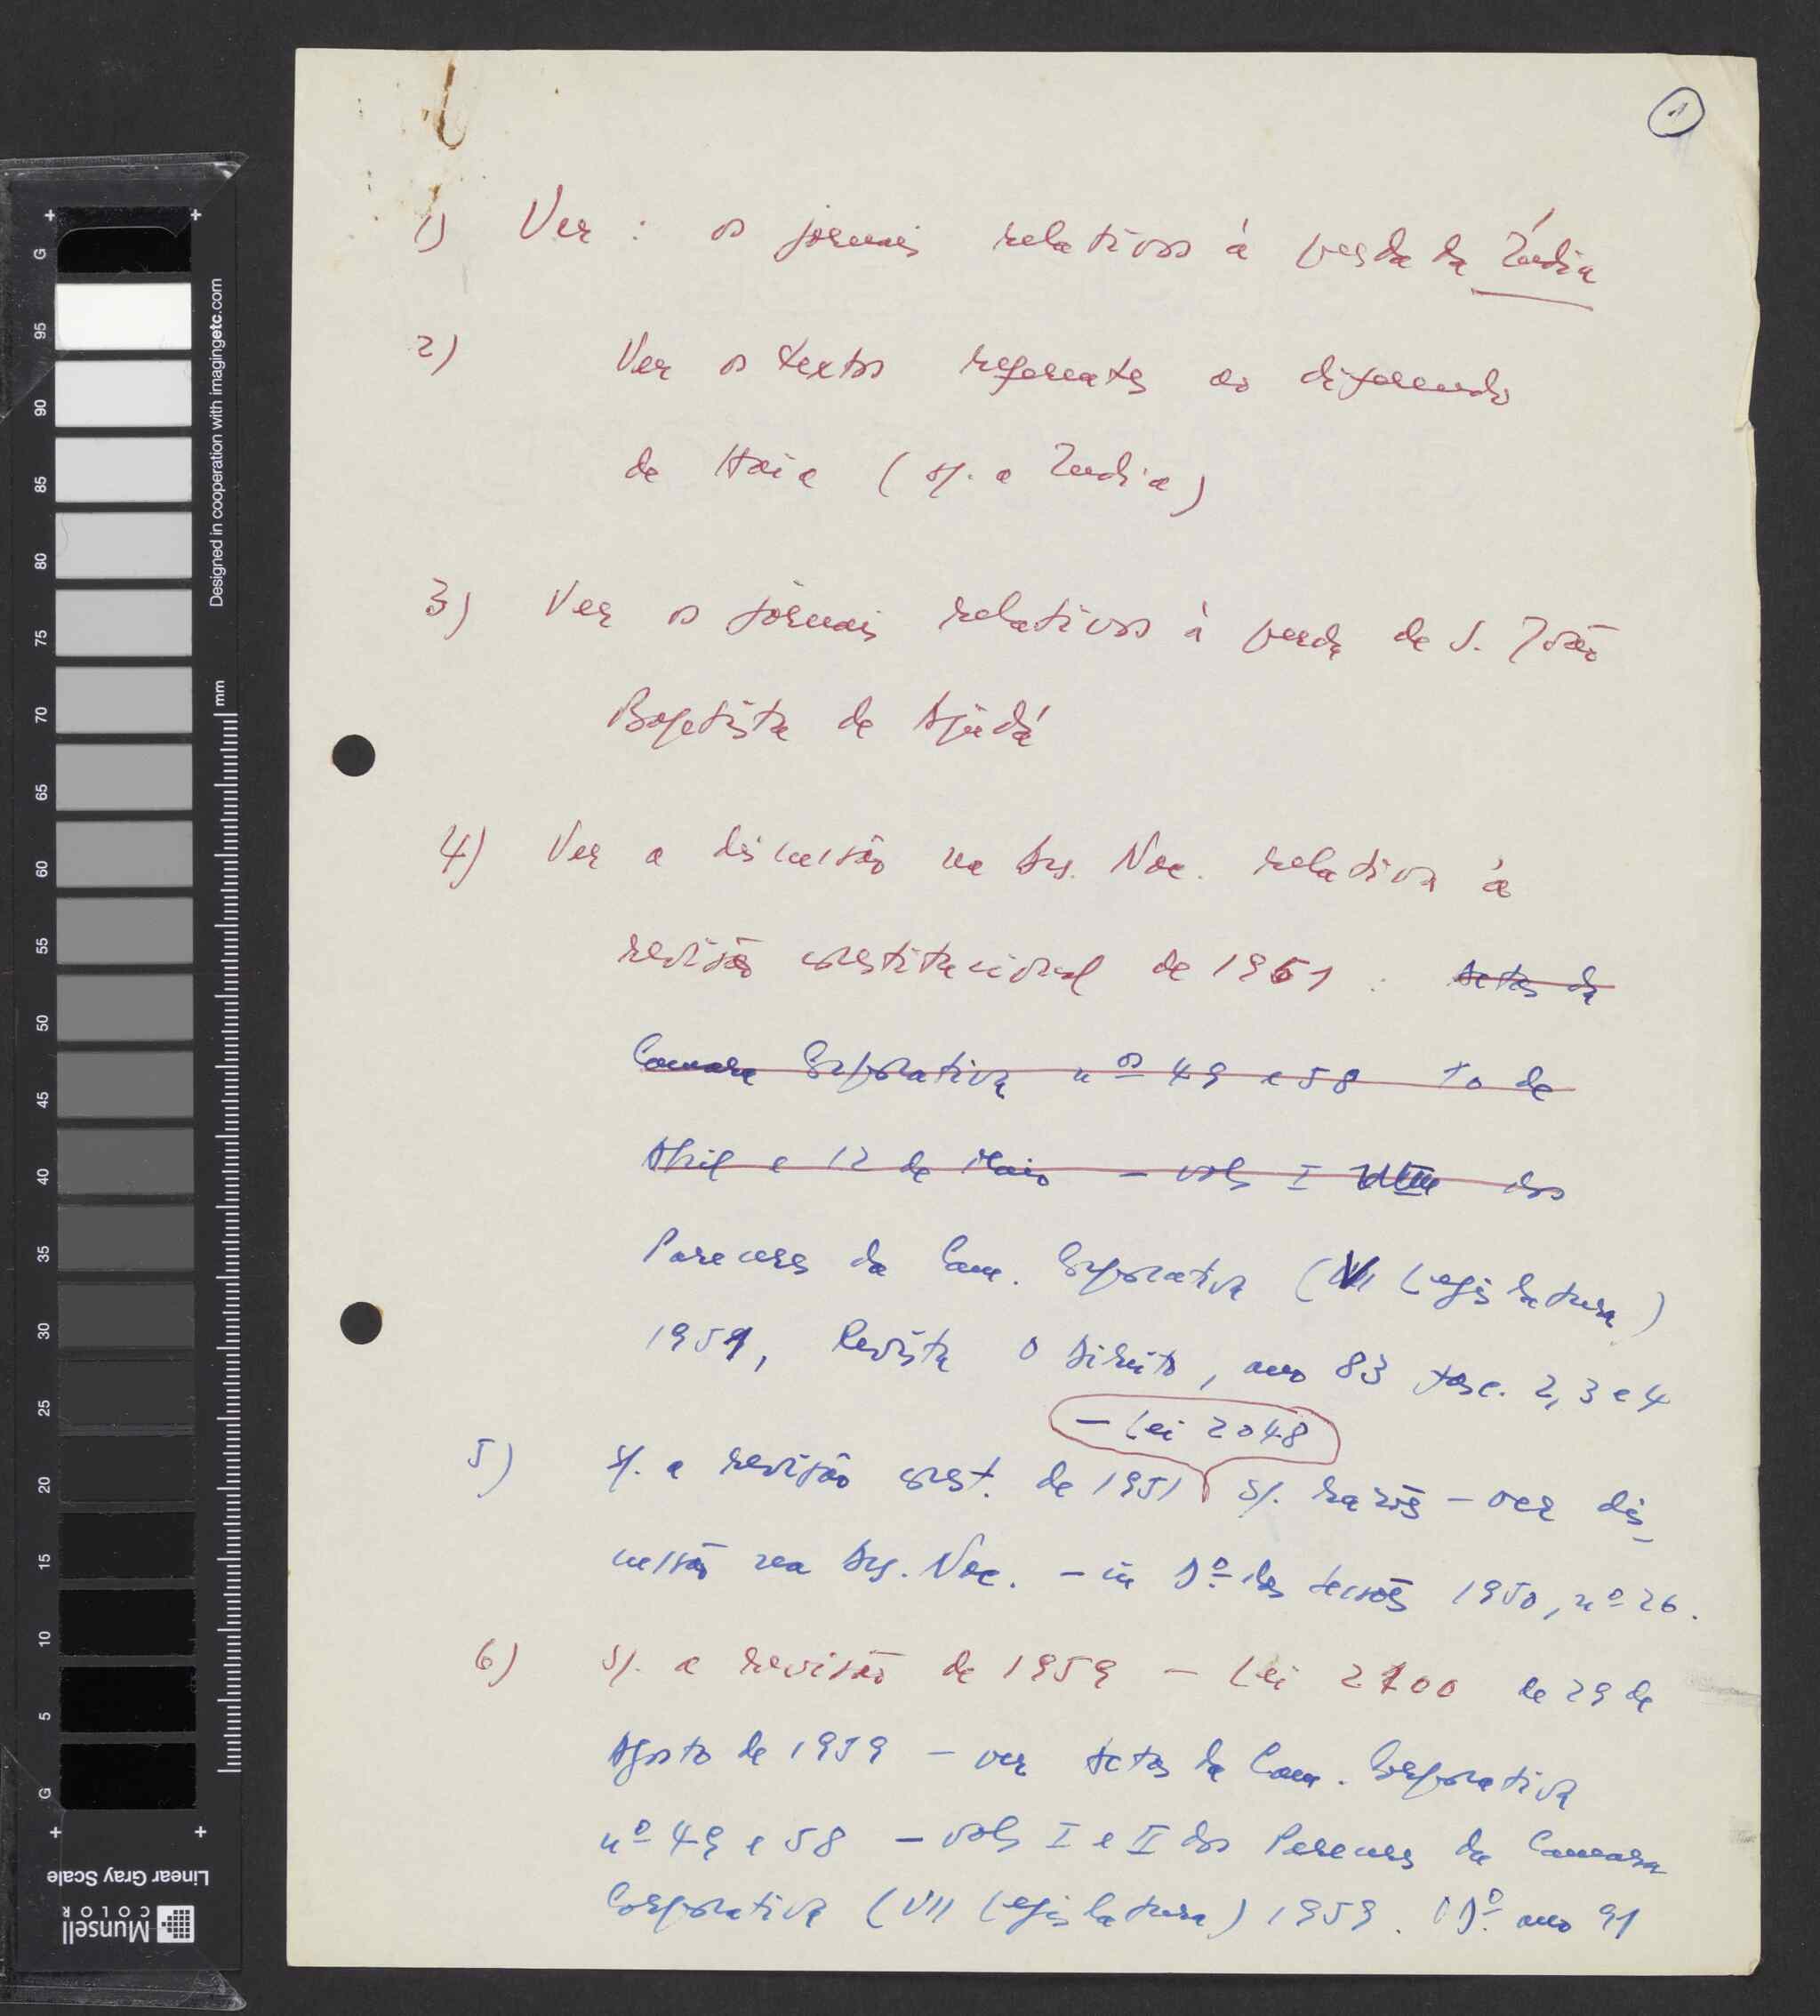 1
1) Ver : os jornais relativos à perda da Índia
2) Ver os textos referentes ao diferendo
de Haia (s/. a India)
3) Ver os jornais relativos à perda de S. João
Baptista de Ajudá
4) Ver a discussão na Ass. Nac. relativa à
revisão constitucional de 1961 : Actas da
Camara Corporativa nºs 49 e 58 10 de
Abril e 12 de Maio – vols I dos
Pareceres da Cam. Corporativa (V Legislatura)
1951, Revista O Direito, ano 83 fasc. 2, 3 e 4
– Lei 2048
5) s/. a revisão const. de 1951 s/. razões – ver dis-
cussão na Ass. Nac. – in Dº das sessões 1950, nº 26.
6) s/. a revisão de 1959 – Lei 2100 de 29 de
Agosto de 1959 – ver Actas da Cam. Corporativa
nº 49 e 58 – vols I e II dos Pareceres da Camara
Corporativa (VII Legislatura) 1959. O Dº ano 91
G
95
90
85
80
75
70
65
60
55
50
45
40
35
30
25
20
15
10
5
G
mm
Designed in cooperation with imagingetc.com
Linear Gray Scale
Munsell
COLOR